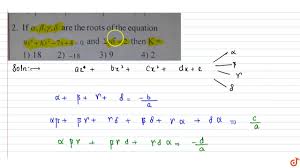 2. If α,β,γ,δ are the roots of the equation
then K =
1) 18 2) -18 3) 9 4) 2
Soln:→ ax⁴ + bx³ + cx² + dx + e
α
β
γ
δ
α + β + γ + δ = -b/a
αβ + βγ + γδ + βδ + γα + δα ⇒ c/a
αβγ + βγδ + γδα ⇒ -d/a